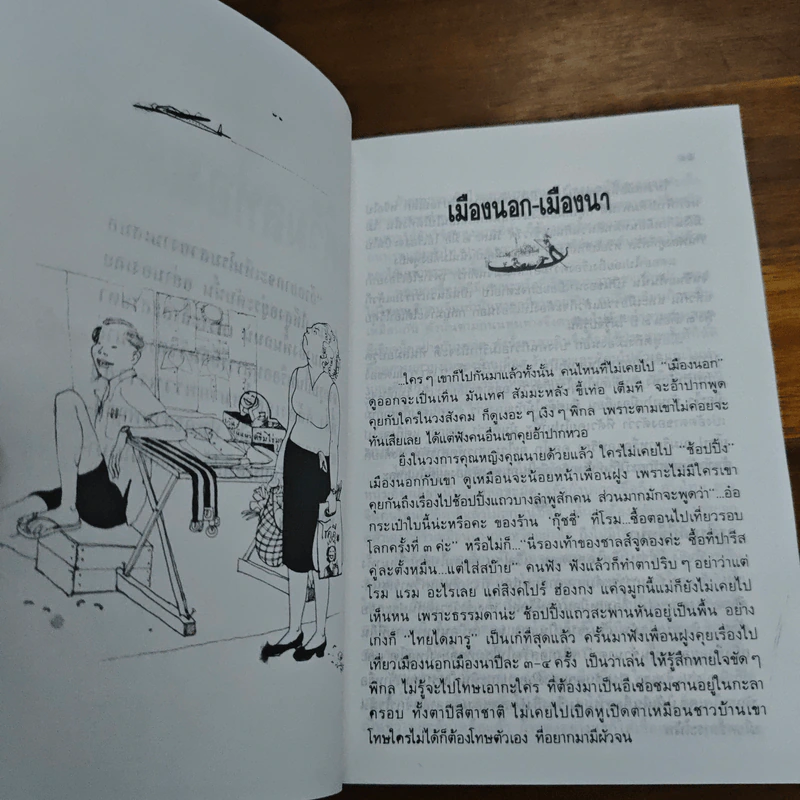 เมืองนอก-เมืองนา
...ใคร ๆ เขาก็ไปกันมาแล้วทั้งนั้น คนไหนที่ไม่เคยไป "เมืองนอก"
ดูออกจะเป็นเทิ่น มันเทศ สัมมะหลัง ขี้เท่อ เต็มที จะอ้าปากพูด
คุยกับใครในวงสังคม ก็ดูเงอะ ๆ เงิง ๆ พิกล เพราะตามเขาไม่ค่อยจะ
ทันเสียเลย ได้แต่ฟังคนอื่นเขาคุยอ้าปากหวอ
ยิ่งในวงการคุณหญิงคุณนายด้วยแล้ว ใครไม่เคยไป "ช้อปปิ้ง"
เมืองนอกกับเขา ดูเหมือนจะน้อยหน้าเพื่อนฝูง เพราะไม่มีใครเขา
คุยกันถึงเรื่องไปช้อปปิ้งแถวบางลำพูสักคน ส่วนมากมักจะพูดว่า"...อ๋อ
กระเป๋าใบนี้น่ะหรือคะ ของร้าน 'กุ๊ชชี่' ที่โรม...ซื้อตอนไปเที่ยวรอบ
โลกครั้งที่ ๓ ค่ะ" หรือไม่ก็..."นี่รองเท้าของชาลส์จูดองค่ะ ซื้อที่ปารีส
คู่ละตั้งหมื่น...แต่ใส่สบ๊าย" คนฟัง ฟังแล้วก็ทำตาปริบ ๆ อย่าว่าแต่
โรม แรม อะไรเลย แค่สิงคโปร์ ฮ่องกง แค่จมูกนี้แม่ก็ยังไม่เคยไป
เห็นหน เพราะธรรมดาน่ะ ช้อปปิ้งแถวสะพานหันอยู่เป็นพื้น อย่าง
เก่งก็ "ไทยไดมารู" เป็นเก๋ที่สุดแล้ว ครั้นมาฟังเพื่อนฝูงคุยเรื่องไป
เที่ยวเมืองนอกเมืองนาปีละ ๓-๔ ครั้ง เป็นว่าเล่น ให้รู้สึกหายใจขัด ๆ
พิกล ไม่รู้จะไปโทษเอากะใคร ที่ต้องมาเป็นอีเซ่อซมซานอยู่ในกะลา
ครอบ ทั้งตาปีสีตาชาติ ไม่เคยไปเปิดหูเปิดตาเหมือนชาวบ้านเขา
โทษใครไม่ได้ก็ต้องโทษตัวเอง ที่อยากมามีผัวจน